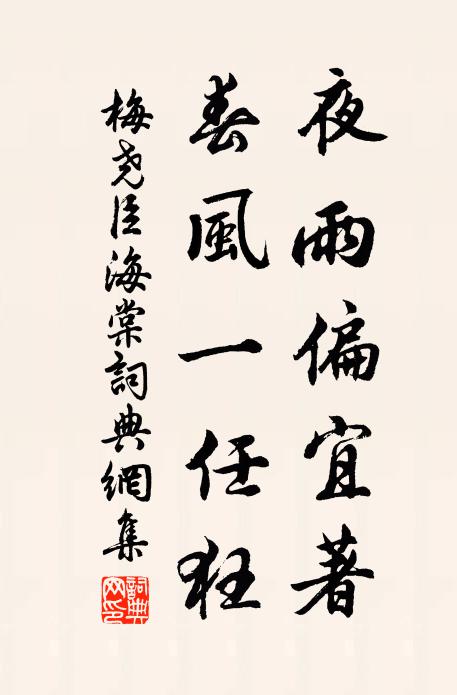 夜雨偏宜著
春風一任狂
梅堯臣海棠詞典網集
詞典網印